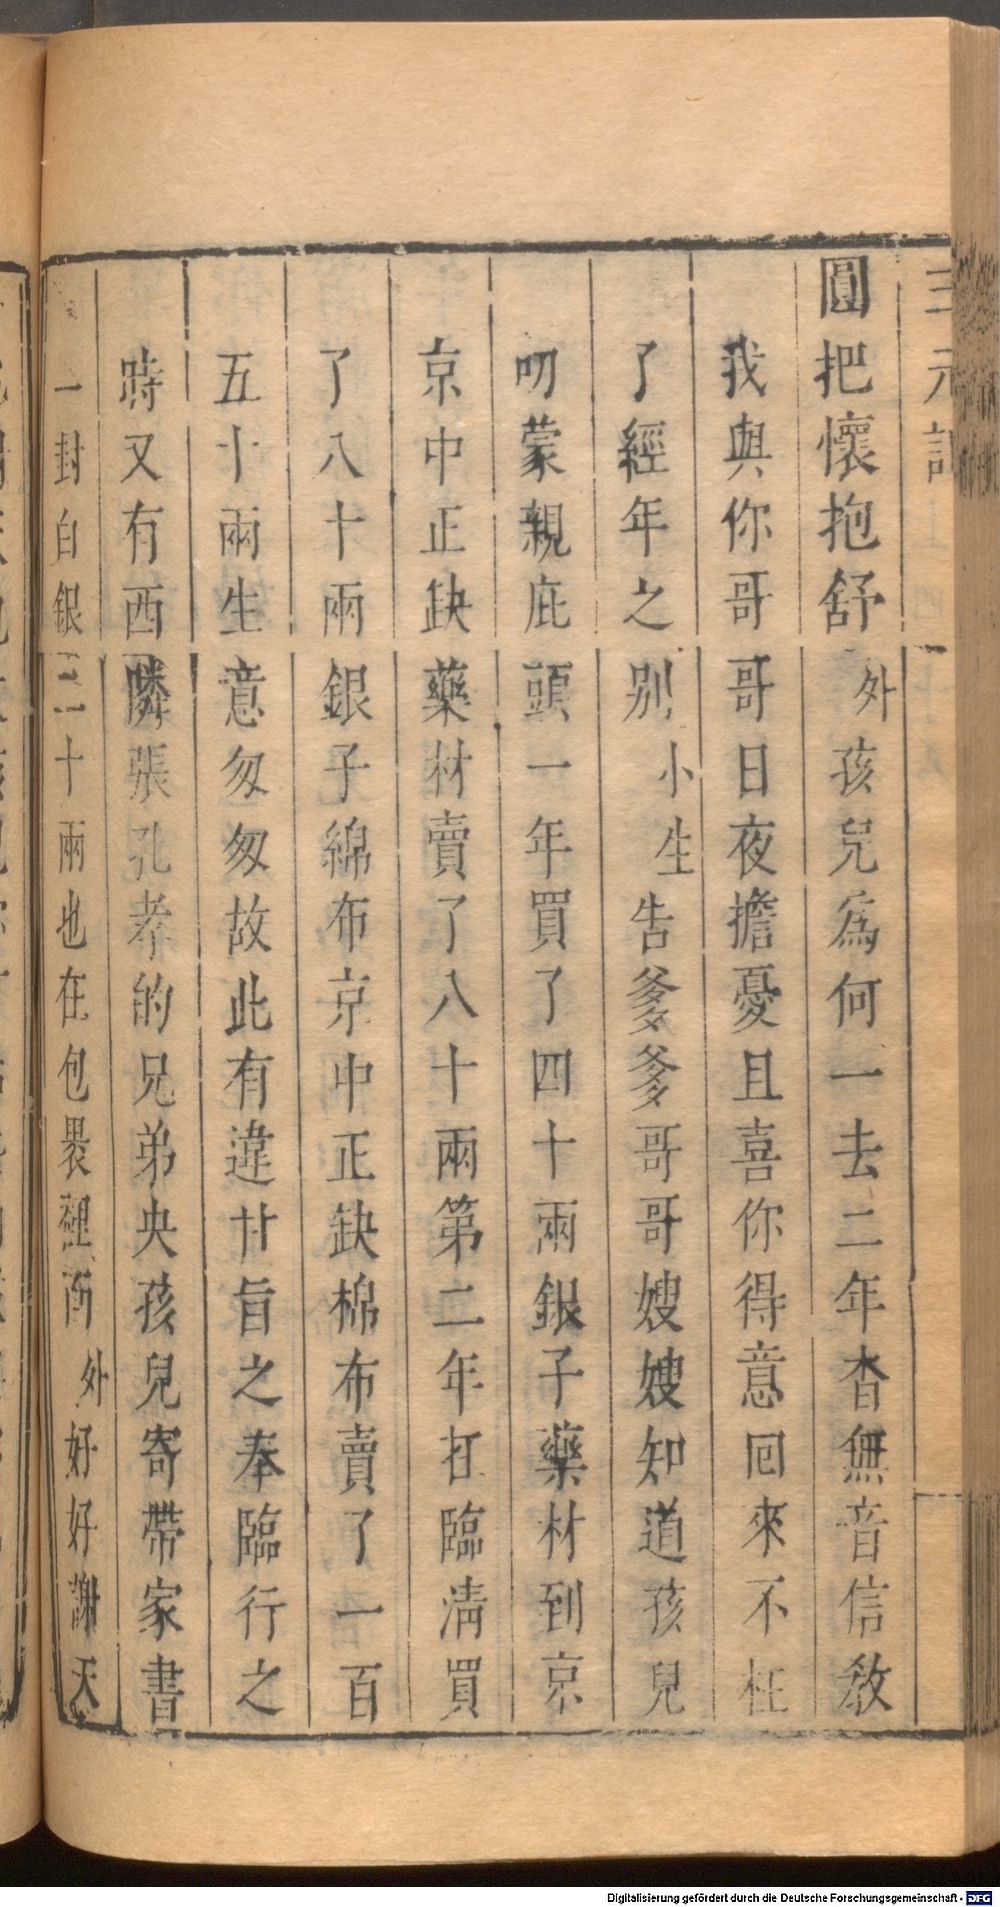 三元記
圓把懷抱舒 外 孩兒爲何一去二年杳無音信教
我與你哥哥日夜擔憂且喜你得意回來不枉
了經年之别 小生 告爹爹哥哥嫂嫂知道孩兒
叨蒙親庇頭一年買了四十兩銀子藥材到京
京中正缺藥材賣了八十兩第二年在臨淸買
了八十兩銀子綿布京中正缺棉布賣了一百
五十兩生意匆匆故此有違甘旨之奉臨行之
時又有西隣張孔孝的兄弟央孩兒寄帶家書
一封白銀二十兩也在包裹裡面 外 好好謝天
Digitalisierung gefördert durch die Deutsche Forschungsgemeinschaft - DFG